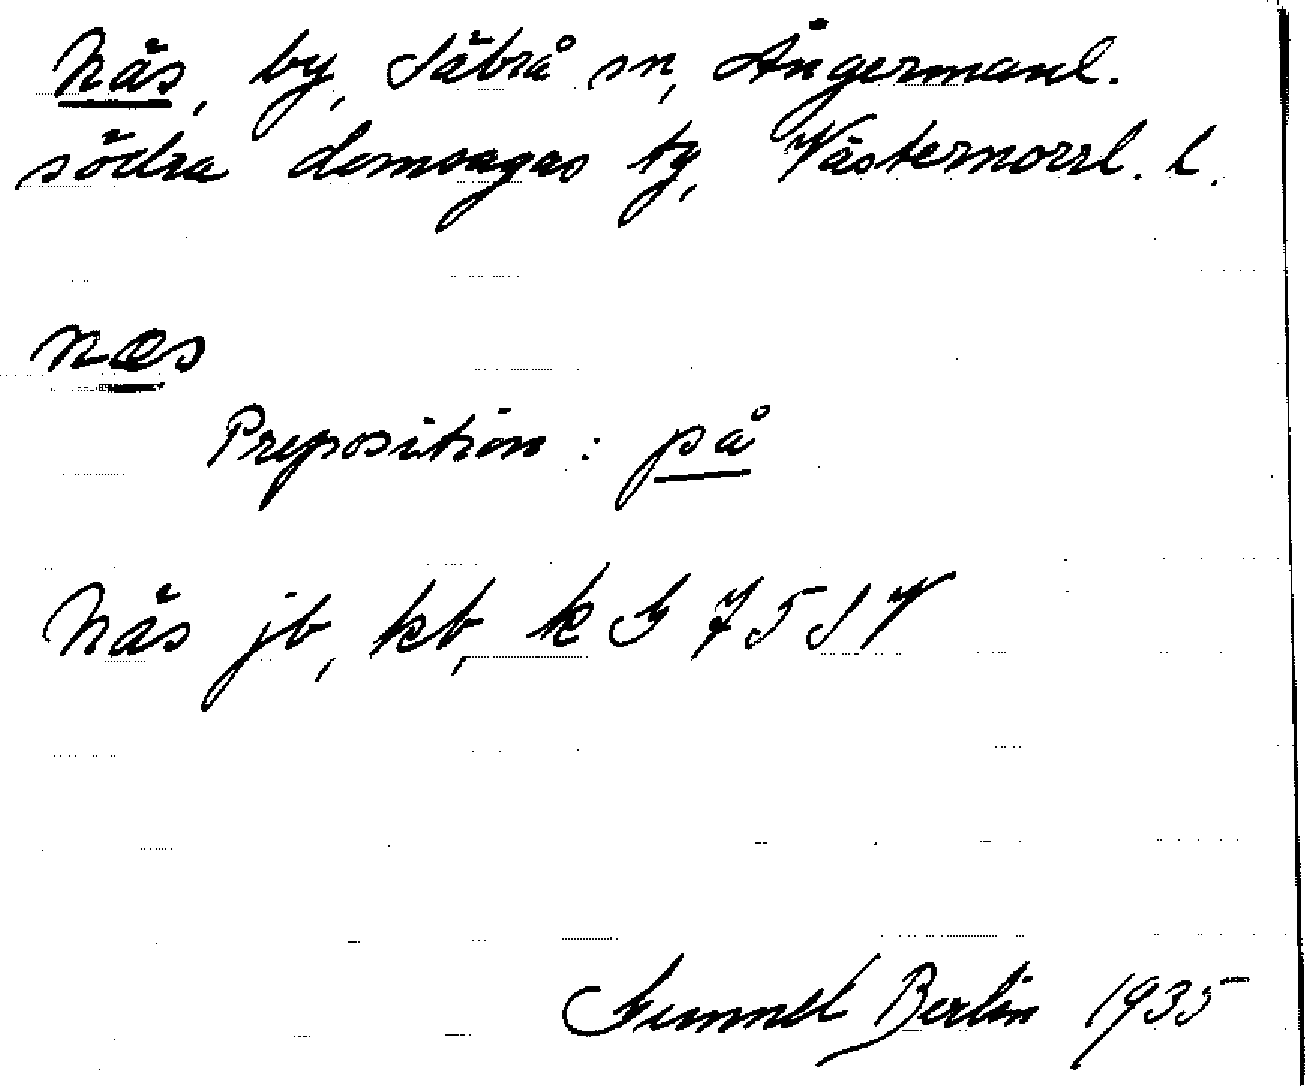 Näs, by, Säbrå sn, Ångermanl.
södra domsagas tg, Västernorrl. l.
næs
Preposition : på
Näs jb, kb, k G 7517
Gunnel Berlin 1935